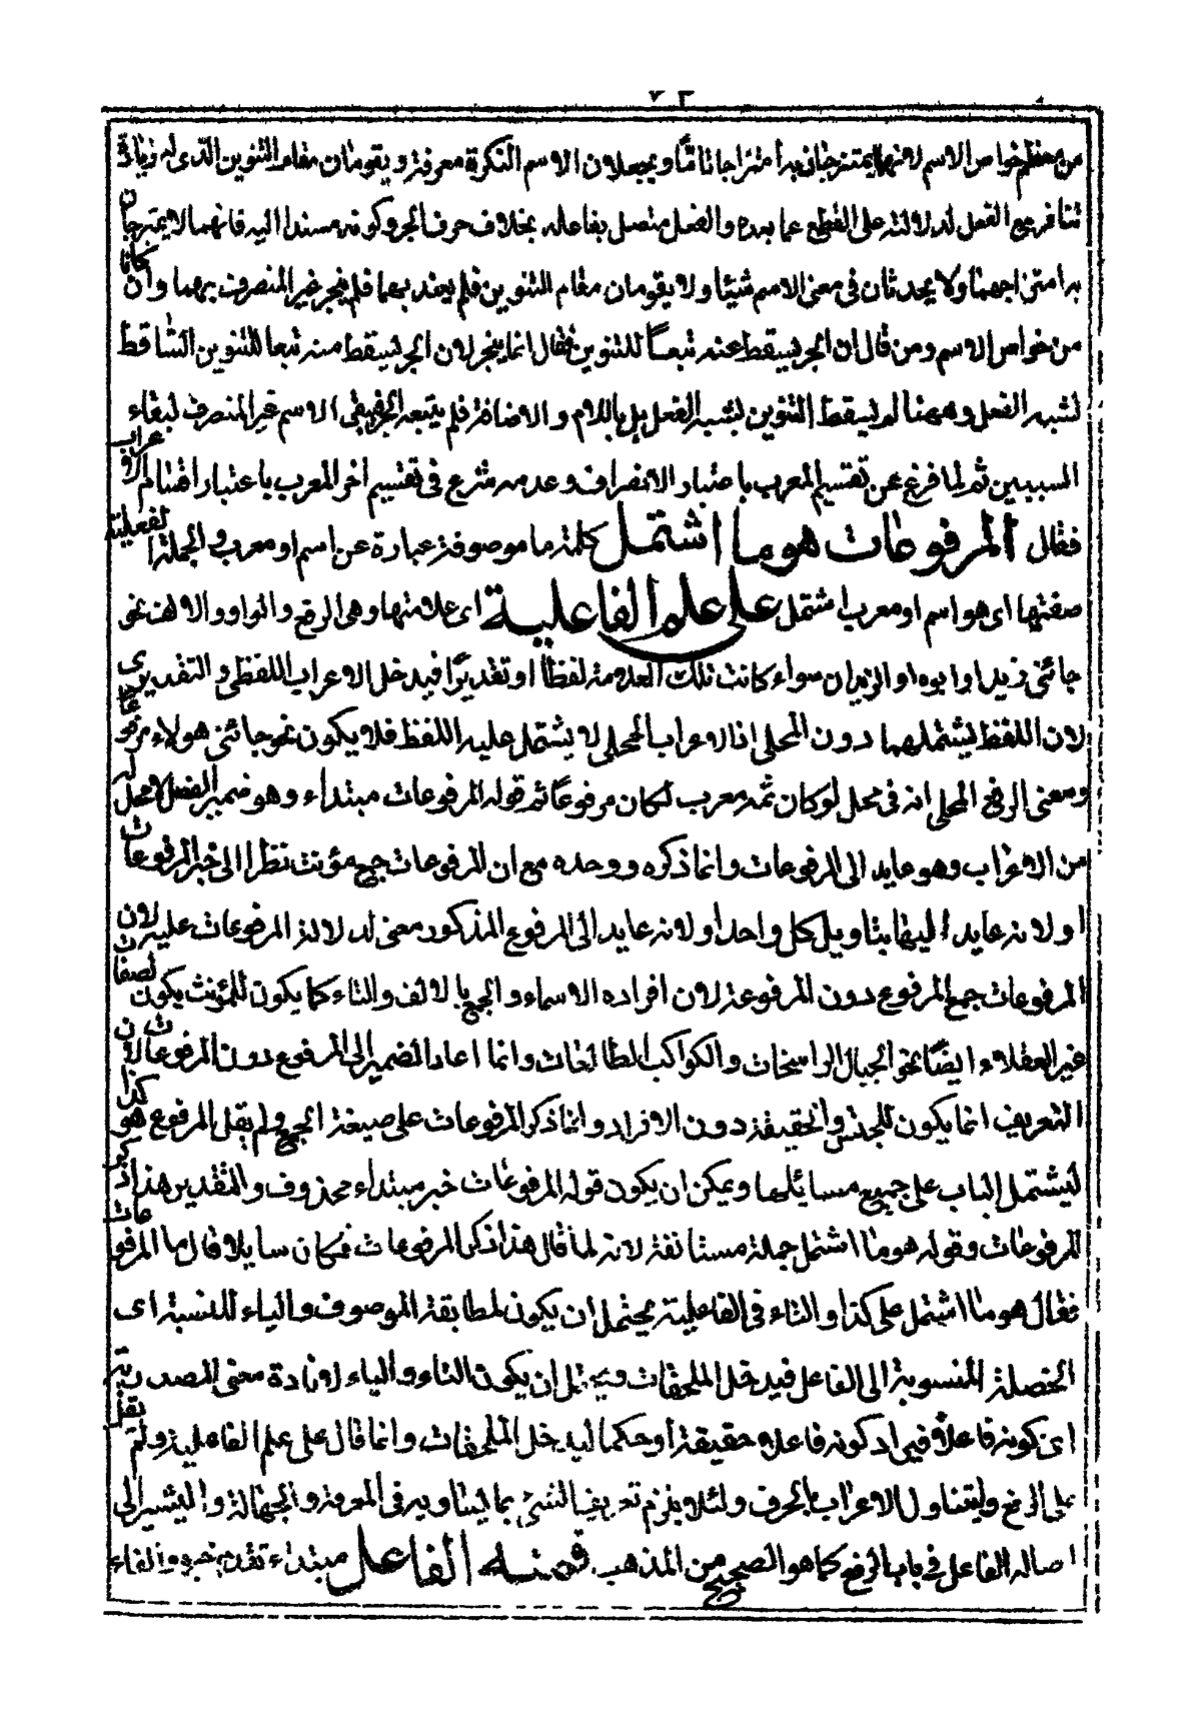 ٢٣
من معظم خواص الاسم لانهما يمتزجان به امتزاجا تاما ويجعلان الاسم النكرة معرفة ويقومان مقام التنوين الذى له زيادة
تنافر مع الفعل لدلالته على القطع عما بعده والفعل متصل بفاعله بخلاف حرف الجر وكونه مسندا اليه فانهما لا يمتزجان
به امتزاجهما ولا يحدثان فى معنى الاسم شيئا ولا يقومان مقام التنوين فلم يعتد بهما فلم ينجر غير المنصرف بهما وان كانا
من خواص الاسم ومن قال ان الجر يسقط عنه تبعا للتنوين فقال انما ينجر لان الجر يسقط منه تبعا للتنوين الساقط
لشبه الفعل وههنا لم يسقط التنوين لشبه الفعل بل باللام والاضافة فلم يتبعه الجر فبقى الاسم غير المنصرف لبقاء
السببين ثم لما فرغ عن تقسيم المعرب باعتبار الانصراف وعدمه شرع فى تقسيم اخر للمعرب باعتبار اقسام الاعراب
فقال المرفوعات هو ما اشتمل كلمة ما موصوفة عبارة عن اسم او معرب والجملة الفعلية
صفتها اى هو اسم او معرب اشتمل على علم الفاعلية اى علامتها وهى الرفع والواو والالف نحو
جائنى زيد او ابوه او الزيدان سواء كانت تلك العلامة لفظا او تقديرا فيدخل الاعراب اللفظى والتقديرى
لان اللفظ يشتملهما دون المحلى اذ الاعراب المحلى لا يشتمل عليه اللفظ فلا يكون نحو جائنى هولاء مرفوعا
ومعنى الرفع المحلى انه فى محل لو كان ثمه معرب لكان مرفوعا ثم قوله المرفوعات مبتداء وهو ضمير الفصل لا محل له
من الاعراب وهو عايد الى المرفوعات وانما ذكره ووحده مع ان المرفوعات جمع مؤنث نظرا الى خبر المرفوعات
او لانه عايد اليها بتاويل كل واحد او لانه عايد الى المرفوع المذكور معنى لدلالة المرفوعات عليه لان
المرفوعات جمع المرفوع دون المرفوعة لان افراده الاسماء والجمع بالالف والتاء كما يكون للمؤنث يكون لصفات
غير العقلاء ايضا نحو الجبال الراسخات والكواكب الطالعات وانما اعاد الضمير الى المرفوع دون المرفوعات لان
التعريف انما يكون للجنس والحقيقة دون الافراد وانما ذكر المرفوعات على صيغة الجمع ولم يقل المرفوع هو كذا
ليشتمل الباب على جميع مسائلها ويمكن ان يكون قوله المرفوعات خبر مبتداء محذوف والتقدير هذا ذكر
المرفوعات وقوله هو ما اشتمل جملة مستانفة لانه لما قال هذا ذكر المرفوعات فكان سايلا قال ما المرفوعات
فقال هو ما اشتمل على كذا والتاء فى الفاعلية يحتمل ان يكون لمطابقة الموصوف والياء للنسبة اى
الخصلة المنسوبة الى الفاعل فيدخل الملحقات ويحتمل ان يكون التاء والياء لافادة معنى المصدرية
اى كونه فاعلا فيراد كونه فاعلا حقيقة او حكما ليدخل الملحقات وانما قال على علم الفاعلية ولم يقل
على الرفع وليتناول الاعراب بالحرف ولئلا يلزم تعريف الشئ بما يساويه فى المعرفة والجهالة وليشير الى
اصالة الفاعل فى باب الرفع كما هو الصحيح من المذهب فمنه الفاعل مبتداء تقدم خبره والفاء